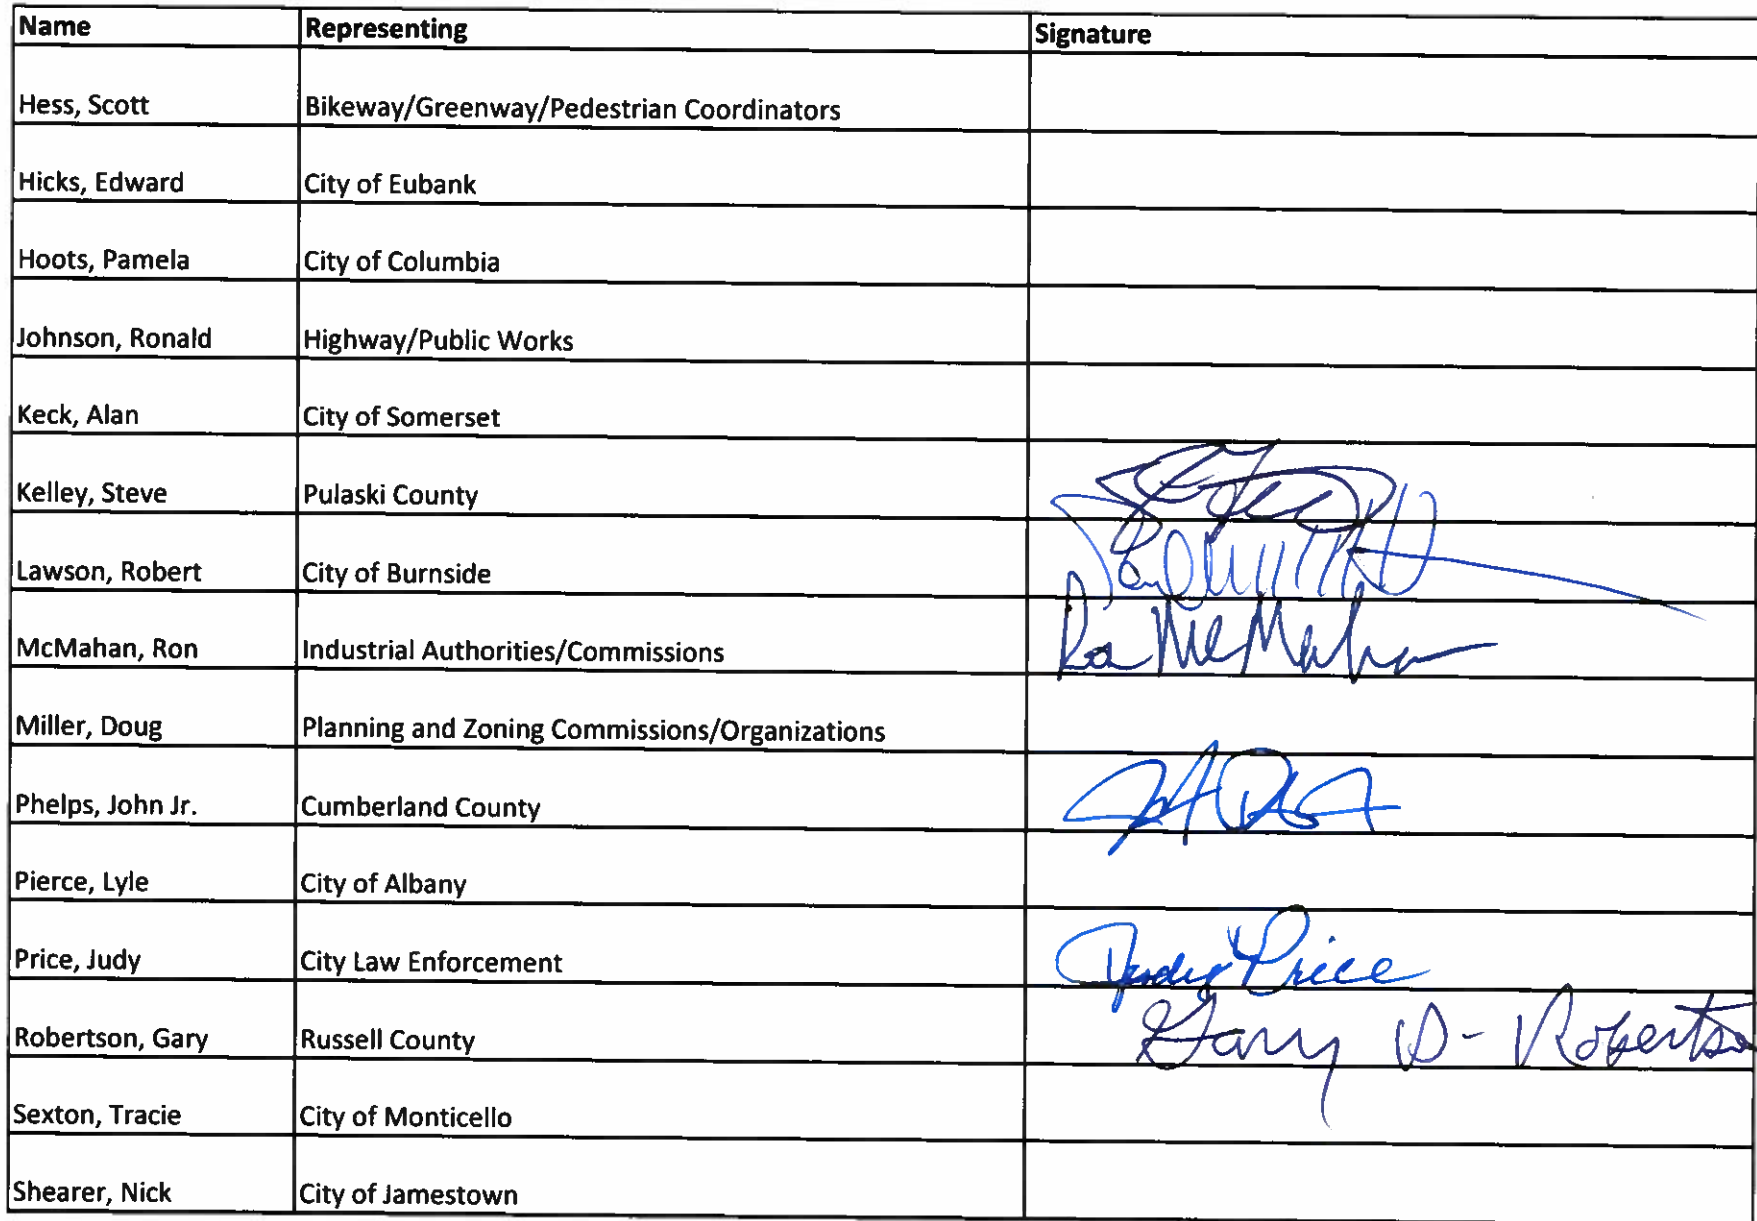 Name Representing Signature
Hess, Scott Bikeway/Greenway/Pedestrian Coordinators
Hicks, Edward City of Eubank
Hoots, Pamela City of Columbia
Johnson, Ronald Highway/Public Works
Keck, Alan City of Somerset
Kelley, Steve Pulaski County
Lawson, Robert City of Burnside
McMahan, Ron Industrial Authorities/Commissions Ron McMahan
Miller, Doug Planning and Zoning Commissions/Organizations
Phelps, John Jr. Cumberland County
Pierce, Lyle City of Albany
Price, Judy City Law Enforcement Judy Price
Robertson, Gary Russell County Gary D- Robertson
Sexton, Tracie City of Monticello
Shearer, Nick City of Jamestown